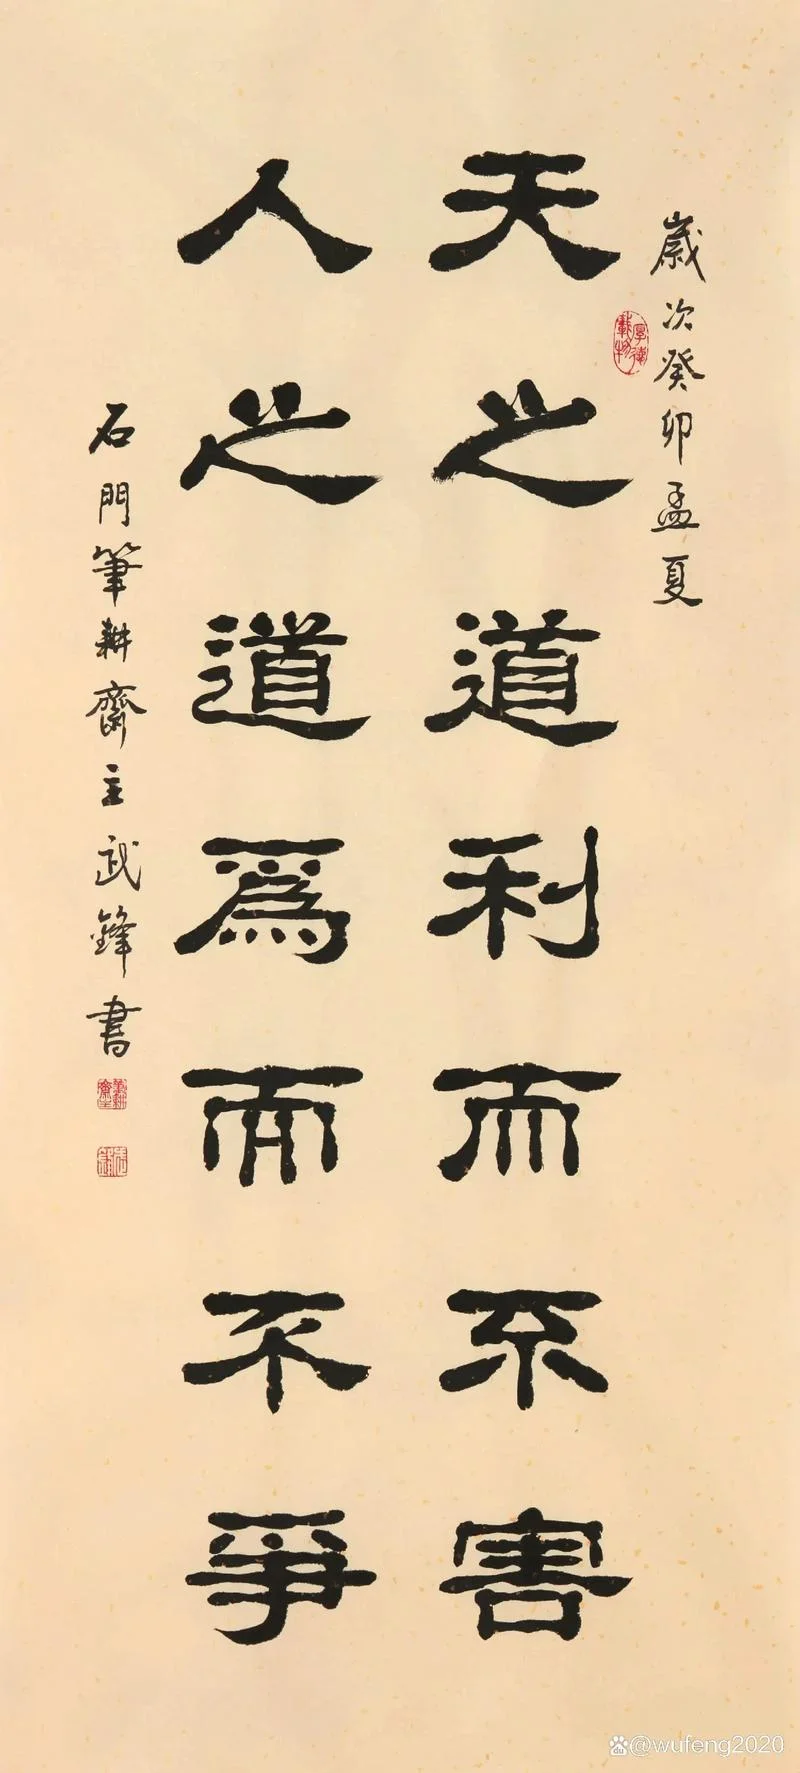 歲次癸卯孟夏
厚德載物
天之道利而不害
人之道爲而不爭
石門筆耕齋主武鋒書
@wufeng2020